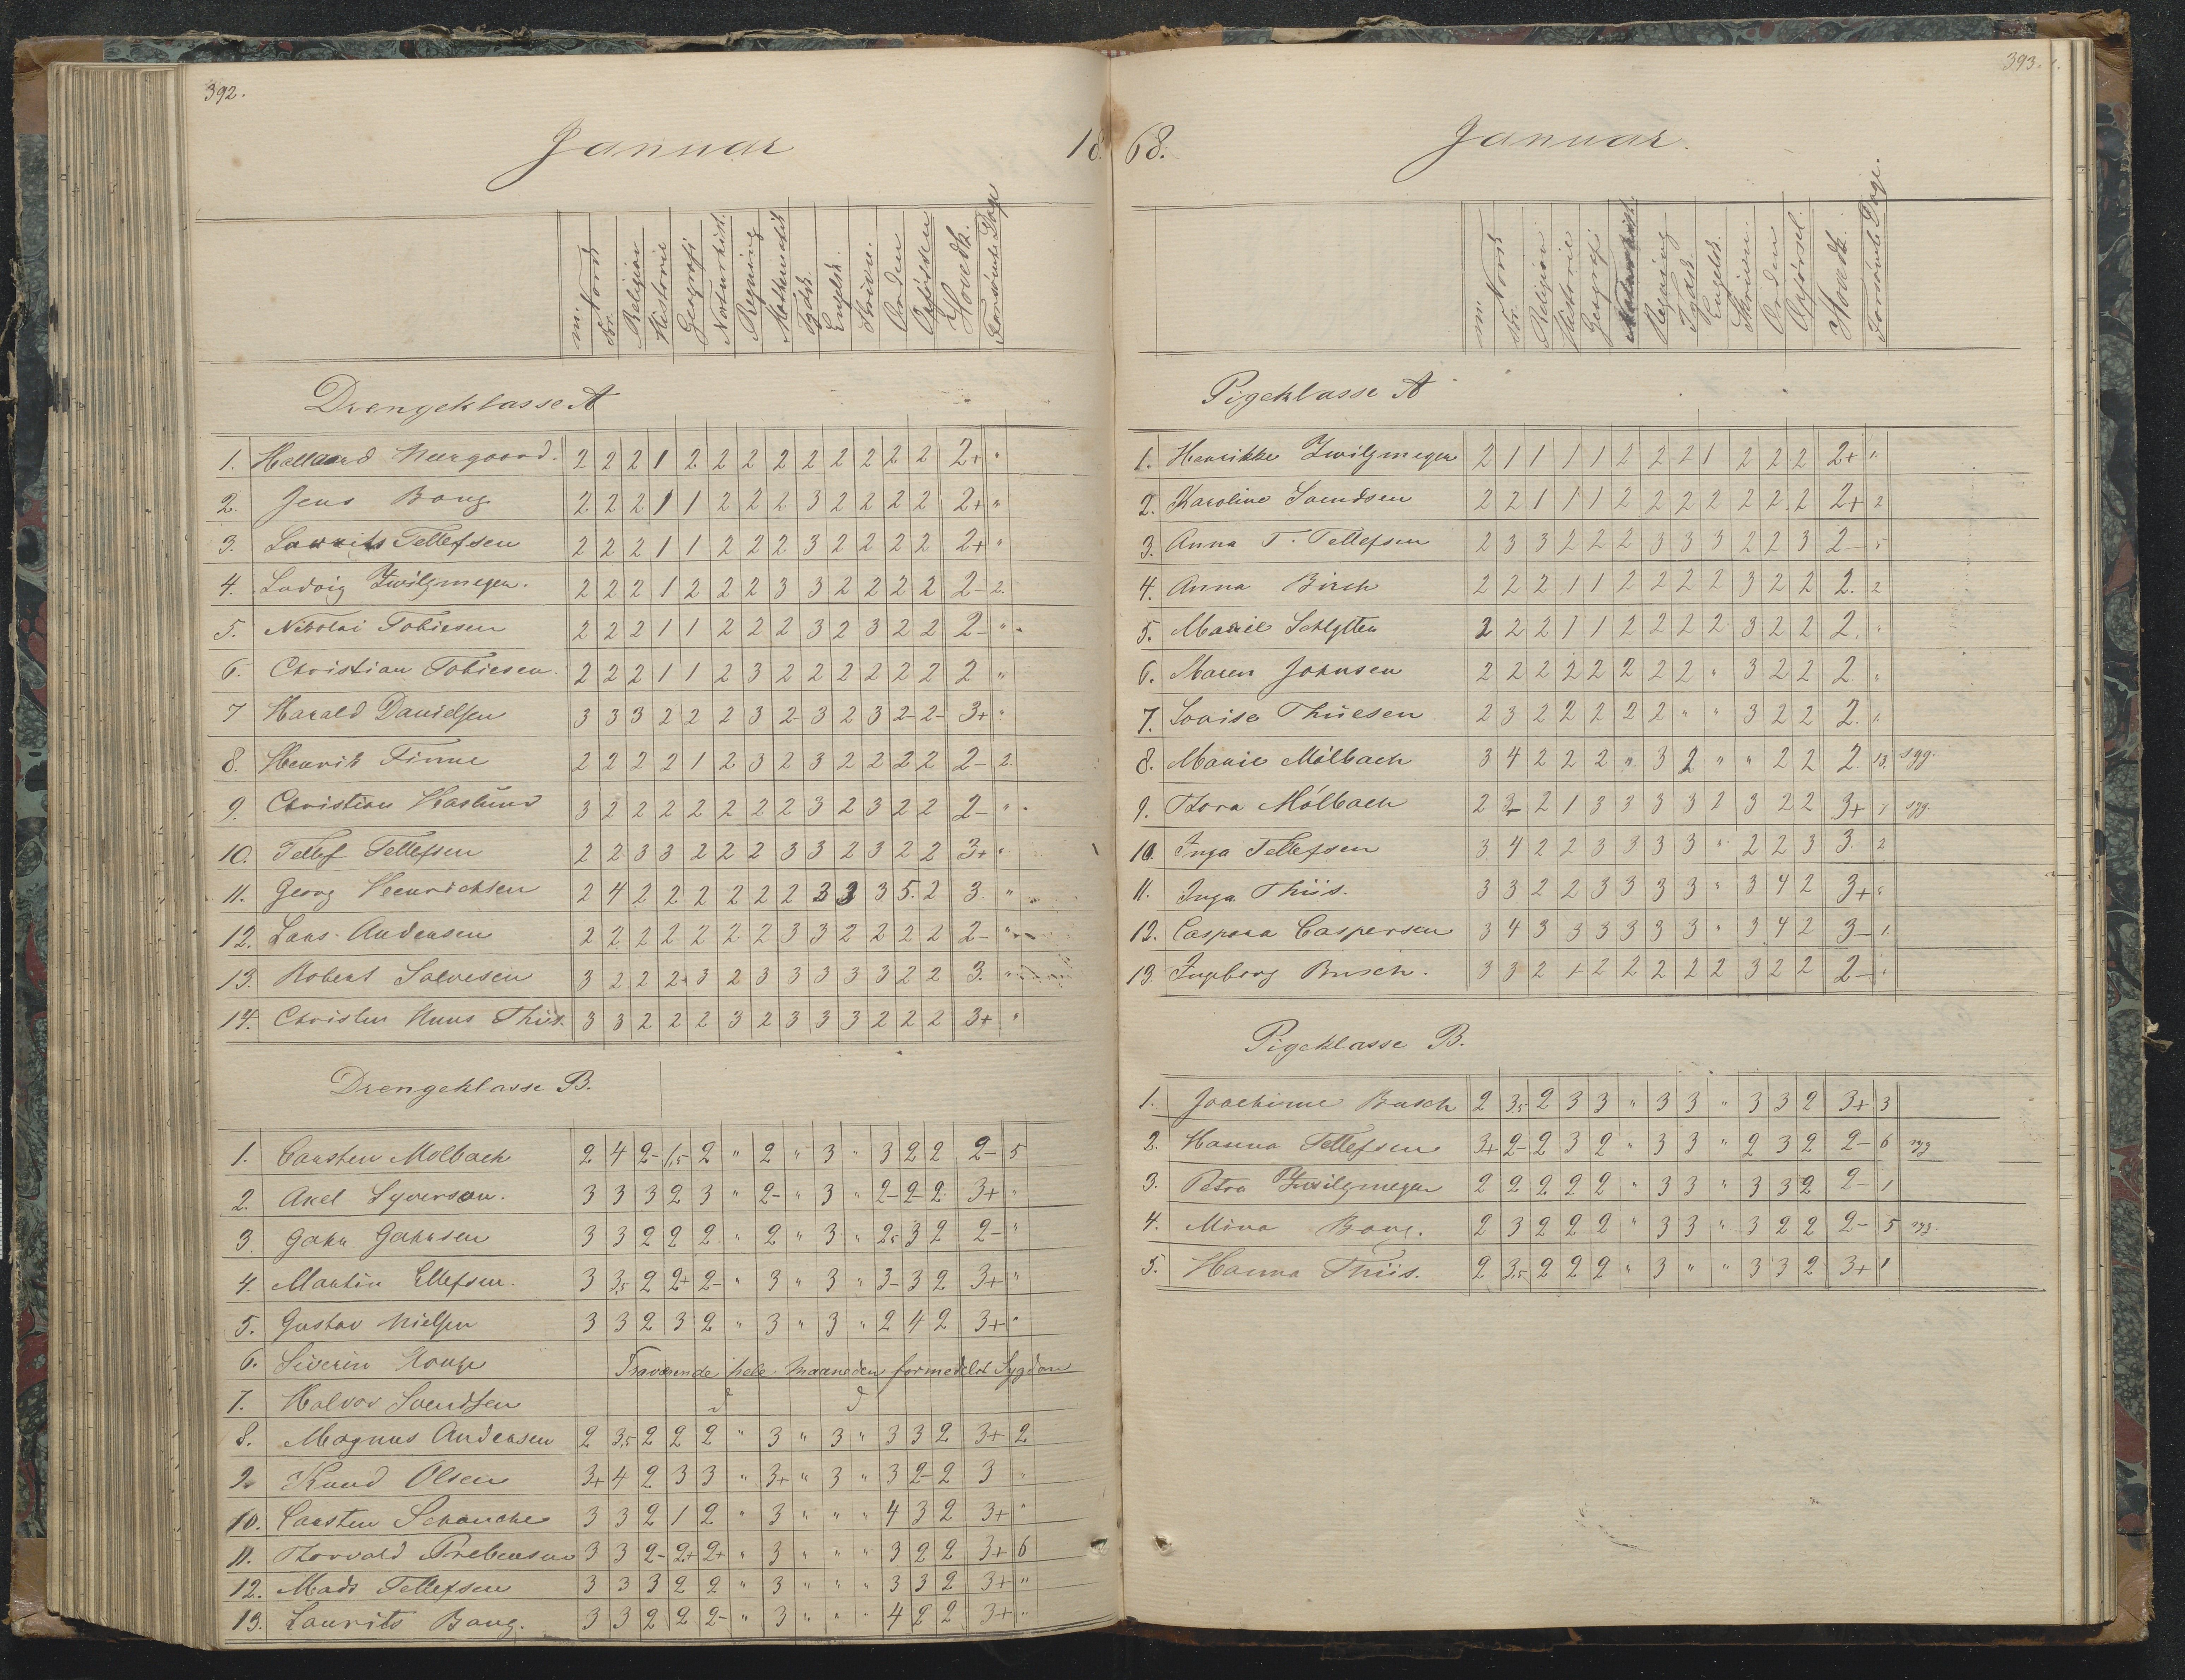 392.
Januar 18
m. Norsk skr. Religion Historie Geografi Naturhist. Regning Mathematik Tydsk Engelsk. Skriven. Orden Opførsel Hovedk. Forsømte Dage
Drengeklasse A
1. Hallaard Neergaard. 2 2 2 1 2 2 2 2 2 2 2 2 2 2+ "
2. Jens Bang 2 2 2 1 1 2 2 2 3 2 2 2 2 2+ "
3. Laurits Tellefsen 2 2 2 1 1 2 2 2 3 2 2 2 2 2+ "
4. Ludvig Zwilgmeyer. 2 2 2 1 2 2 2 3 3 2 2 2 2 2- 2.
5. Nikolai Tobiesen 2 2 2 1 1 2 2 2 3 2 3 2 2 2- "
6. Christian Tobiesen. 2 2 2 1 1 2 3 2 2 2 2 2 2 2 "
7 Harald Danielsen 3 3 3 2 2 2 3 2- 3 2 3 2- 2- 3+ "
8. Henrik Finne 2 2 2 2 1 2 3 2 3 2 2 2 2 2- 2.
9. Christian Haslund 3 2 2 2 2 2 2 2 3 2 3 2 2 2- "
10. Tellef Tellefsen 2 2 3 3 2 2 2 3 3 2 3 2 2 3+ "
11. Georg Heinrichsen 2 4 2 2 2 2 2 2 3 3 3 5. 2 3. "
12. Lars Andersen 2 2 2 2 2 2 2 3 3 2 2 2 2 2- "
13. Robert Salvesen 3 2 2 2+ 3 2 3 3 3 3 3 2 2 3. "
14. Christen Huus Thiis. 3 3 2 2 2 3 2 3 3 3 2 2 2 3+ "
Drengeklasse B.
1. Carsten Molbach 2 4 2- 1,5 2 " 2 " 3 " 3 2 2 2- 5
2. Axel Syversen. 3 3 3 2 3 " 2- " 3 " 2- 2- 2 3+ "
3. Jahn Jahnsen 3 3 2 2 2 " 2 " 3 " 2,5 3 2 2- "
4. Martin Ellefsen. 3 3,5 2 2+ 2- " 3 " 3 " 3- 3 2 3+ "
5. Gustav Nielsen 3 3 2 3 2 " 3 " 3 " 2 4 2 3+ "
6. Severin Houge Fraværende hele Maaneden formedelst Sygdom
7. Halvor Svendsen
8. Magnus Andersen 2 3,5 2 2 2 " 3 " 3 " 3 3 2 3+ 2
9. Knud Olsen 3+ 4 2 3 3 " 3+ " 3 " 3 2- 2 3 "
10. Carsten Schanche 3 3 2 1 2 " 3 " " " 4 3 2 3+ "
11. Thorvald Prebensen 3 3 2- 2+ 2+ " 3 " " " 3 2 2 3+ 6
12. Mads Tellefsen 3 3 3 2 2 " 3 " " " 3 3 2 3+ "
13. Laurits Bang. 3 3 2 2 2- " 3 " " " 4 2 2 3+ "
393.
68. Januar.
m. Norsk skr. Religion Historie Geografi Regning Tydsk Engelsk. Skriven. Orden Opførsel. Hovedk. Forsømte Dage.
Pigeklasse A
1. Henrikke Zwilgmeyer 2 1 1 1 1 2 2 2 1 2 2 2 2+ 1.
2. Karoline Svendsen 2 2 1 1 1 2 2 2 2 2 2 2 2+ 2
3. Anna T. Tellefsen 2 3 3 2 2 2 3 3 3 2 2 3 2- "
4. Anna Birch 2 2 2 1 1 2 2 2 2 3 2 2 2. 2
5. Marie Schlytter 2 2 2 1 1 2 2 2 2 3 2 2 2. "
6. Maren Johnsen 2 2 2 2 2 2 2 2 " 3 2 2 2. "
7. Lovise Thiesen 2 3 2 2 2 2 2 " " 3 2 2 2. 1.
8. Marie Mölbach 3 4 2 2 2 " 3 2 " " 2 2 2. 13. syg.
9. Thora Mölbach 2 3- 2 1 3 3 3 3 2 3 2 2 3+ 7 syg.
10. Inga Tellefsen 3 4 2 2 3 3 3 3 " 2 2 3 3. 2
11. Inga Thiis. 3 3 2 2 3 3 3 3 " 3 4 2 3+ "
12. Caspara Caspersen 3 4 3 3 3 3 3 3 " 3 4 2 3- 1.
13. Ingeborg Busch. 3 3 2 1+ 2 2 2 2 2 3 2 2 2- "
Pigeklasse B.
1. Joachime Busch 2 3,5 2 3 3 " 3 3 " 3 3 2 3+ 3
2. Hanna Tellefsen 3+ 2- 2 3 2 " 3 3 " 2 3 2 2- 6 syg
3. Petra Zwilgmeyer 2 2 2 2 2 " 3 3 " 3 3 2 2- 1
4. Mina Bang. 2 3 2 2 2 " 3 3 " 3 2 2 2- 5 syg.
5. Hanna Thiis. 2 3,5 2 2 2 " 3 " " 3 3 2 3+ 1